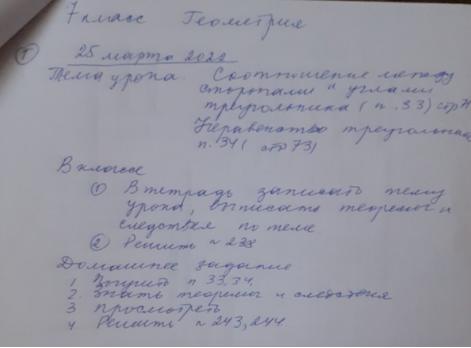 7 класс Геометрия
① 25 марта 2022
Тема урока. Соотношение между
сторонами и углами
треугольника (п. 33) стр 71
Неравенство треугольника
п. 34 ( стр 73)
В классе
① В тетрадь записать тему
урока, выписать теоремы и
следствия по теме
② Решить № 238
Домашнее задание
1 Выучить п 33, 34.
2. Знать теоремы и следствия
3 просмотреть
4 Решить № 243, 244.